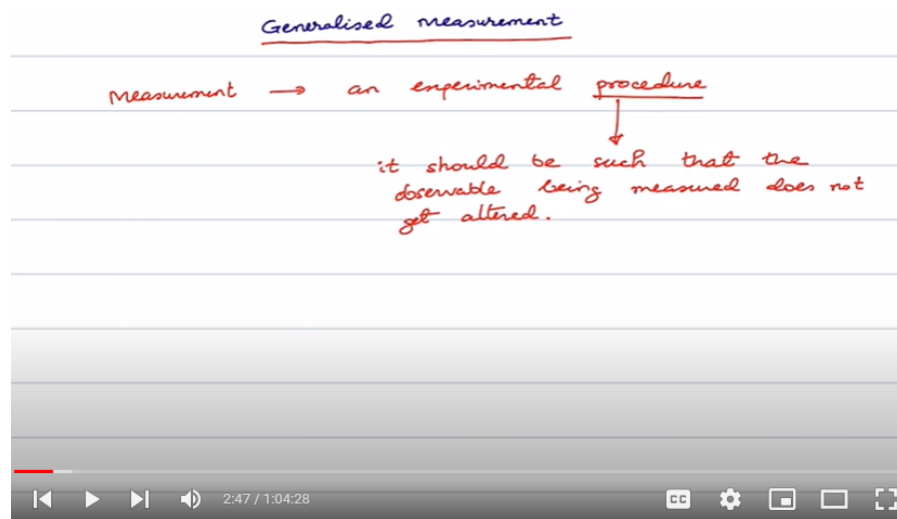 Generalised measurement
Measurement → an experimental procedure
it should be such that the
observable being measured does not
get altered.
2:47 / 1:04:28
CC